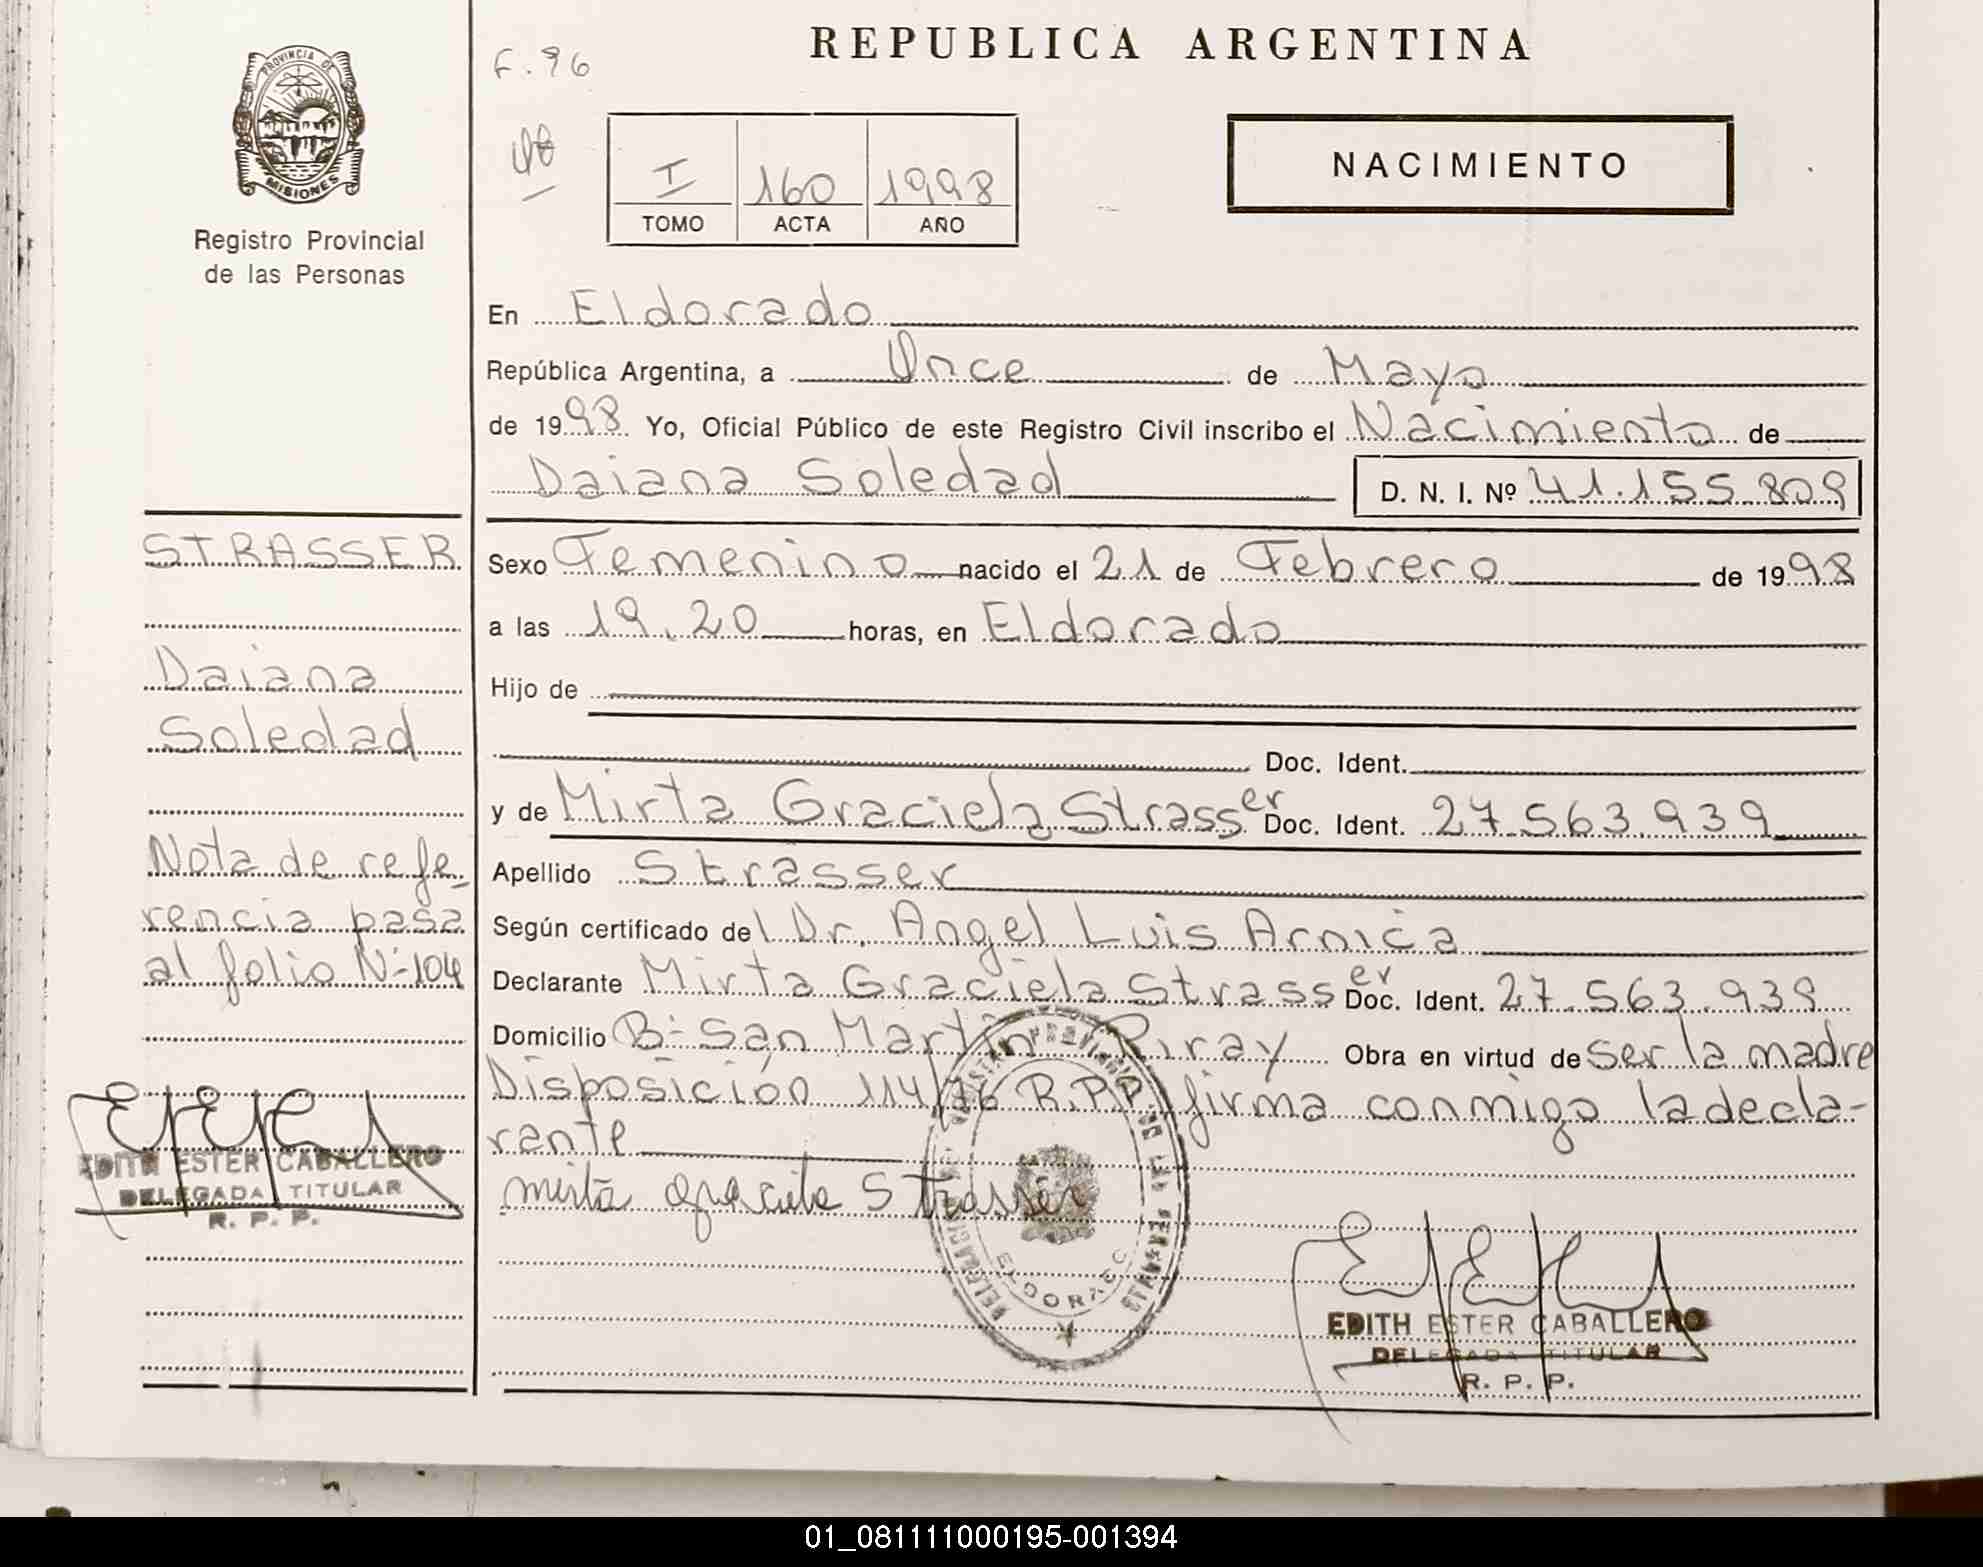 PROVINCIA DE
MISIONES
Registro Provincial
de las Personas
F. 96
REPUBLICA ARGENTINA
I 160 1998
TOMO ACTA AÑO
NACIMIENTO
En Eldorado
República Argentina, a Once de Mayo
de 1998 Yo, Oficial Público de este Registro Civil inscribo el Nacimiento de
Daiana Soledad D. N. I. Nº 41.155.809
Sexo Femenino nacido el 21 de Febrero de 1998
a las 19.20 horas, en Eldorado
Hijo de
Doc. Ident.
y de Mirta Graciela Strasser Doc. Ident. 27.563.939
Apellido Strasser
Según certificado del Dr. Angel Luis Arnica
Declarante Mirta Graciela Strasser Doc. Ident. 27.563.939
Domicilio Bº San Martin Piray Obra en virtud de ser la madre
Disposición 114/76 R.P.P. firma conmigo la decla-
rante
Mirta Graciela Strasser
STRASSER
Daiana
Soledad
Nota de refe-
rencia pasa
al folio Nº 104
EDITH ESTER CABALLERO
DELEGADA TITULAR
R. P. P.
ELDORADO
EDITH ESTER CABALLERO
DELEGADA TITULAR
R. P. P.
01_081111000195-001394